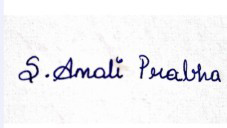 S. Anali Prabha